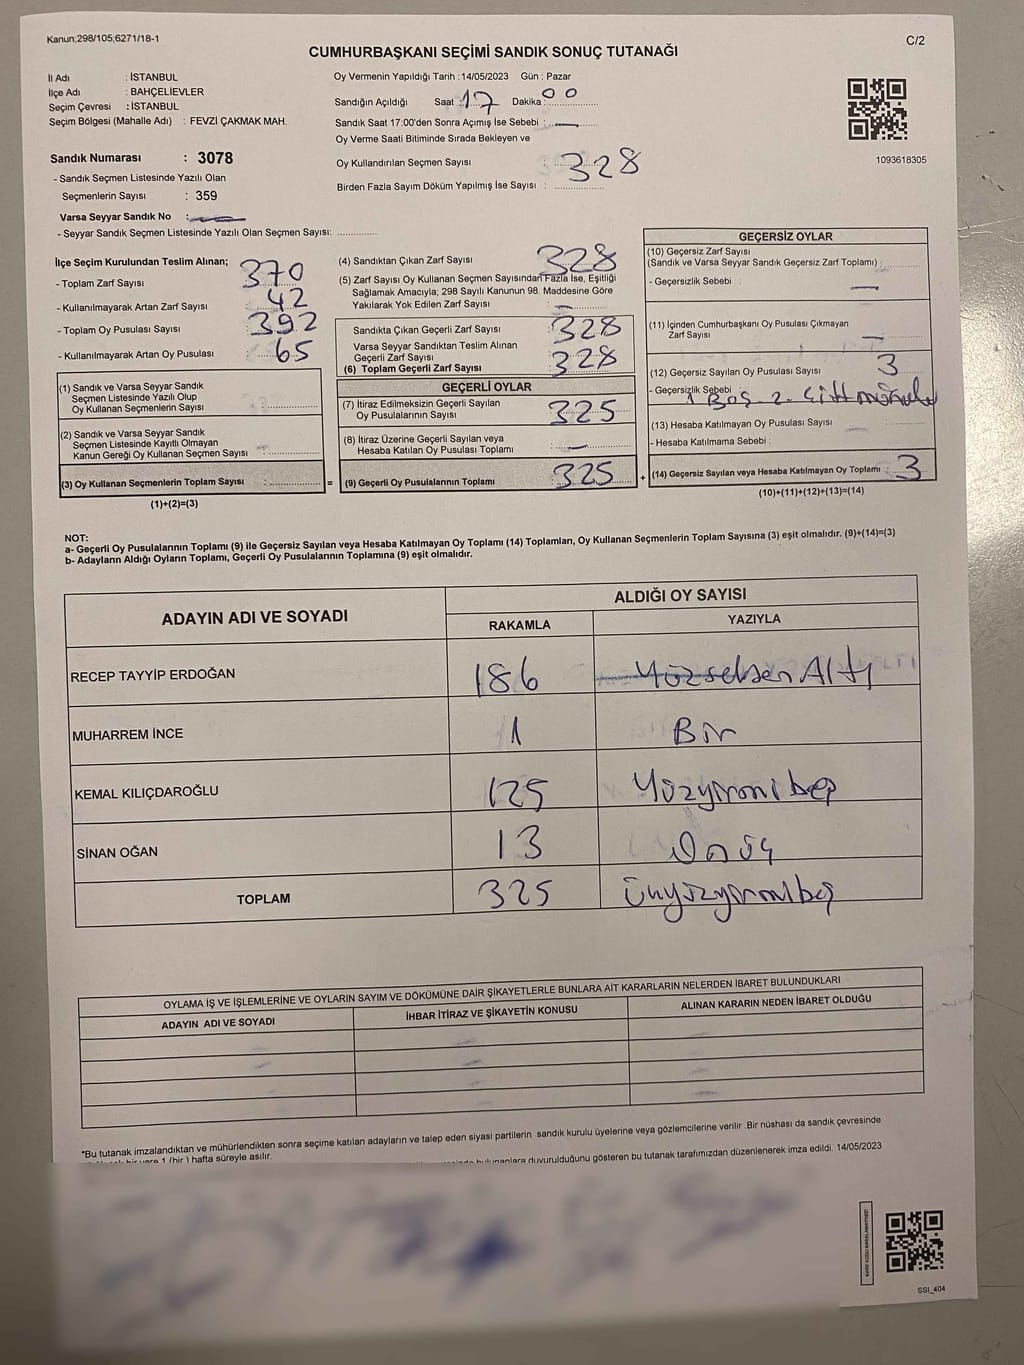 Kanun;298/105;6271/18-1
C/2
CUMHURBAŞKANI SEÇİMİ SANDIK SONUÇ TUTANAĞI
İl Adı : İSTANBUL
İlçe Adı : BAHÇELİEVLER
Seçim Çevresi : İSTANBUL
Seçim Bölgesi (Mahalle Adı) : FEVZİ ÇAKMAK MAH.
Sandık Numarası : 3078
- Sandık Seçmen Listesinde Yazılı Olan
Seçmenlerin Sayısı : 359
Varsa Seyyar Sandık No :
- Seyyar Sandık Seçmen Listesinde Yazılı Olan Seçmen Sayısı:
Oy Vermenin Yapıldığı Tarih : 14/05/2023 Gün : Pazar
Sandığın Açıldığı Saat : 17 Dakika : 00
Sandık Saat 17:00'den Sonra Açımış İse Sebebi : —
Oy Verme Saati Bitiminde Sırada Bekleyen ve
Oy Kullandırılan Seçmen Sayısı 328
Birden Fazla Sayım Döküm Yapılmış İse Sayısı :
1093618305
İlçe Seçim Kurulundan Teslim Alınan;
- Toplam Zarf Sayısı 370
- Kullanılmayarak Artan Zarf Sayısı 42
- Toplam Oy Pusulası Sayısı 392
- Kullanılmayarak Artan Oy Pusulası 65
(1) Sandık ve Varsa Seyyar Sandık
Seçmen Listesinde Yazılı Olup
Oy Kullanan Seçmenlerin Sayısı :
(2) Sandık ve Varsa Seyyar Sandık
Seçmen Listesinde Kayıtlı Olmayan
Kanun Gereği Oy Kullanan Seçmen Sayısı :
(3) Oy Kullanan Seçmenlerin Toplam Sayısı : =
(1)+(2)=(3)
(4) Sandıktan Çıkan Zarf Sayısı 328
(5) Zarf Sayısı Oy Kullanan Seçmen Sayısından Fazla İse, Eşitliği
Sağlamak Amacıyla; 298 Sayılı Kanunun 98. Maddesine Göre
Yakılarak Yok Edilen Zarf Sayısı : —
Sandıkta Çıkan Geçerli Zarf Sayısı 328
Varsa Seyyar Sandıktan Teslim Alınan
Geçerli Zarf Sayısı
(6) Toplam Geçerli Zarf Sayısı 328
GEÇERLİ OYLAR
(7) İtiraz Edilmeksizin Geçerli Sayılan
Oy Pusulalarının Sayısı 325
(8) İtiraz Üzerine Geçerli Sayılan veya
Hesaba Katılan Oy Pusulası Toplamı : —
(9) Geçerli Oy Pusulalarının Toplamı 325 +
GEÇERSİZ OYLAR
(10) Geçersiz Zarf Sayısı
(Sandık ve Varsa Seyyar Sandık Geçersiz Zarf Toplamı) :
- Geçersizlik Sebebi : —
(11) İçinden Cumhurbaşkanı Oy Pusulası Çıkmayan
Zarf Sayısı : —
(12) Geçersiz Sayılan Oy Pusulası Sayısı 3
- Geçersizlik Sebebi : 1 Boş 2. Çift mühür
(13) Hesaba Katılmayan Oy Pusulası Sayısı
- Hesaba Katılmama Sebebi :
(14) Geçersiz Sayılan veya Hesaba Katılmayan Oy Toplamı : 3
(10)+(11)+(12)+(13)=(14)
NOT:
a- Geçerli Oy Pusulalarının Toplamı (9) ile Geçersiz Sayılan veya Hesaba Katılmayan Oy Toplamı (14) Toplamları, Oy Kullanan Seçmenlerin Toplam Sayısına (3) eşit olmalıdır. (9)+(14)=(3)
b- Adayların Aldığı Oyların Toplamı, Geçerli Oy Pusulalarının Toplamına (9) eşit olmalıdır.
ADAYIN ADI VE SOYADI
ALDIĞI OY SAYISI
RAKAMLA YAZIYLA
RECEP TAYYİP ERDOĞAN 186 Yüzseksen Altı
MUHARREM İNCE 1 Bir
KEMAL KILIÇDAROĞLU 125 Yüzyirmibeş
SİNAN OĞAN 13 Onüç
TOPLAM 325 Üçyüzyirmibeş
OYLAMA İŞ VE İŞLEMLERİNE VE OYLARIN SAYIM VE DÖKÜMÜNE DAİR ŞİKAYETLERLE BUNLARA AİT KARARLARIN NELERDEN İBARET BULUNDUKLARI
ADAYIN ADI VE SOYADI İHBAR İTİRAZ VE ŞİKAYETİN KONUSU ALINAN KARARIN NEDEN İBARET OLDUĞU
*Bu tutanak imzalandıktan ve mühürlendikten sonra seçime katılan adayların ve talep eden siyasi partilerin sandık kurulu üyelerine veya gözlemcilerine verilir .Bir nüshası da sandık çevresinde
1 (bir ) hafta süreyle asılır.
duyurulduğunu gösteren bu tutanak tarafımızdan düzenlenerek imza edildi. 14/05/2023
SSI_404